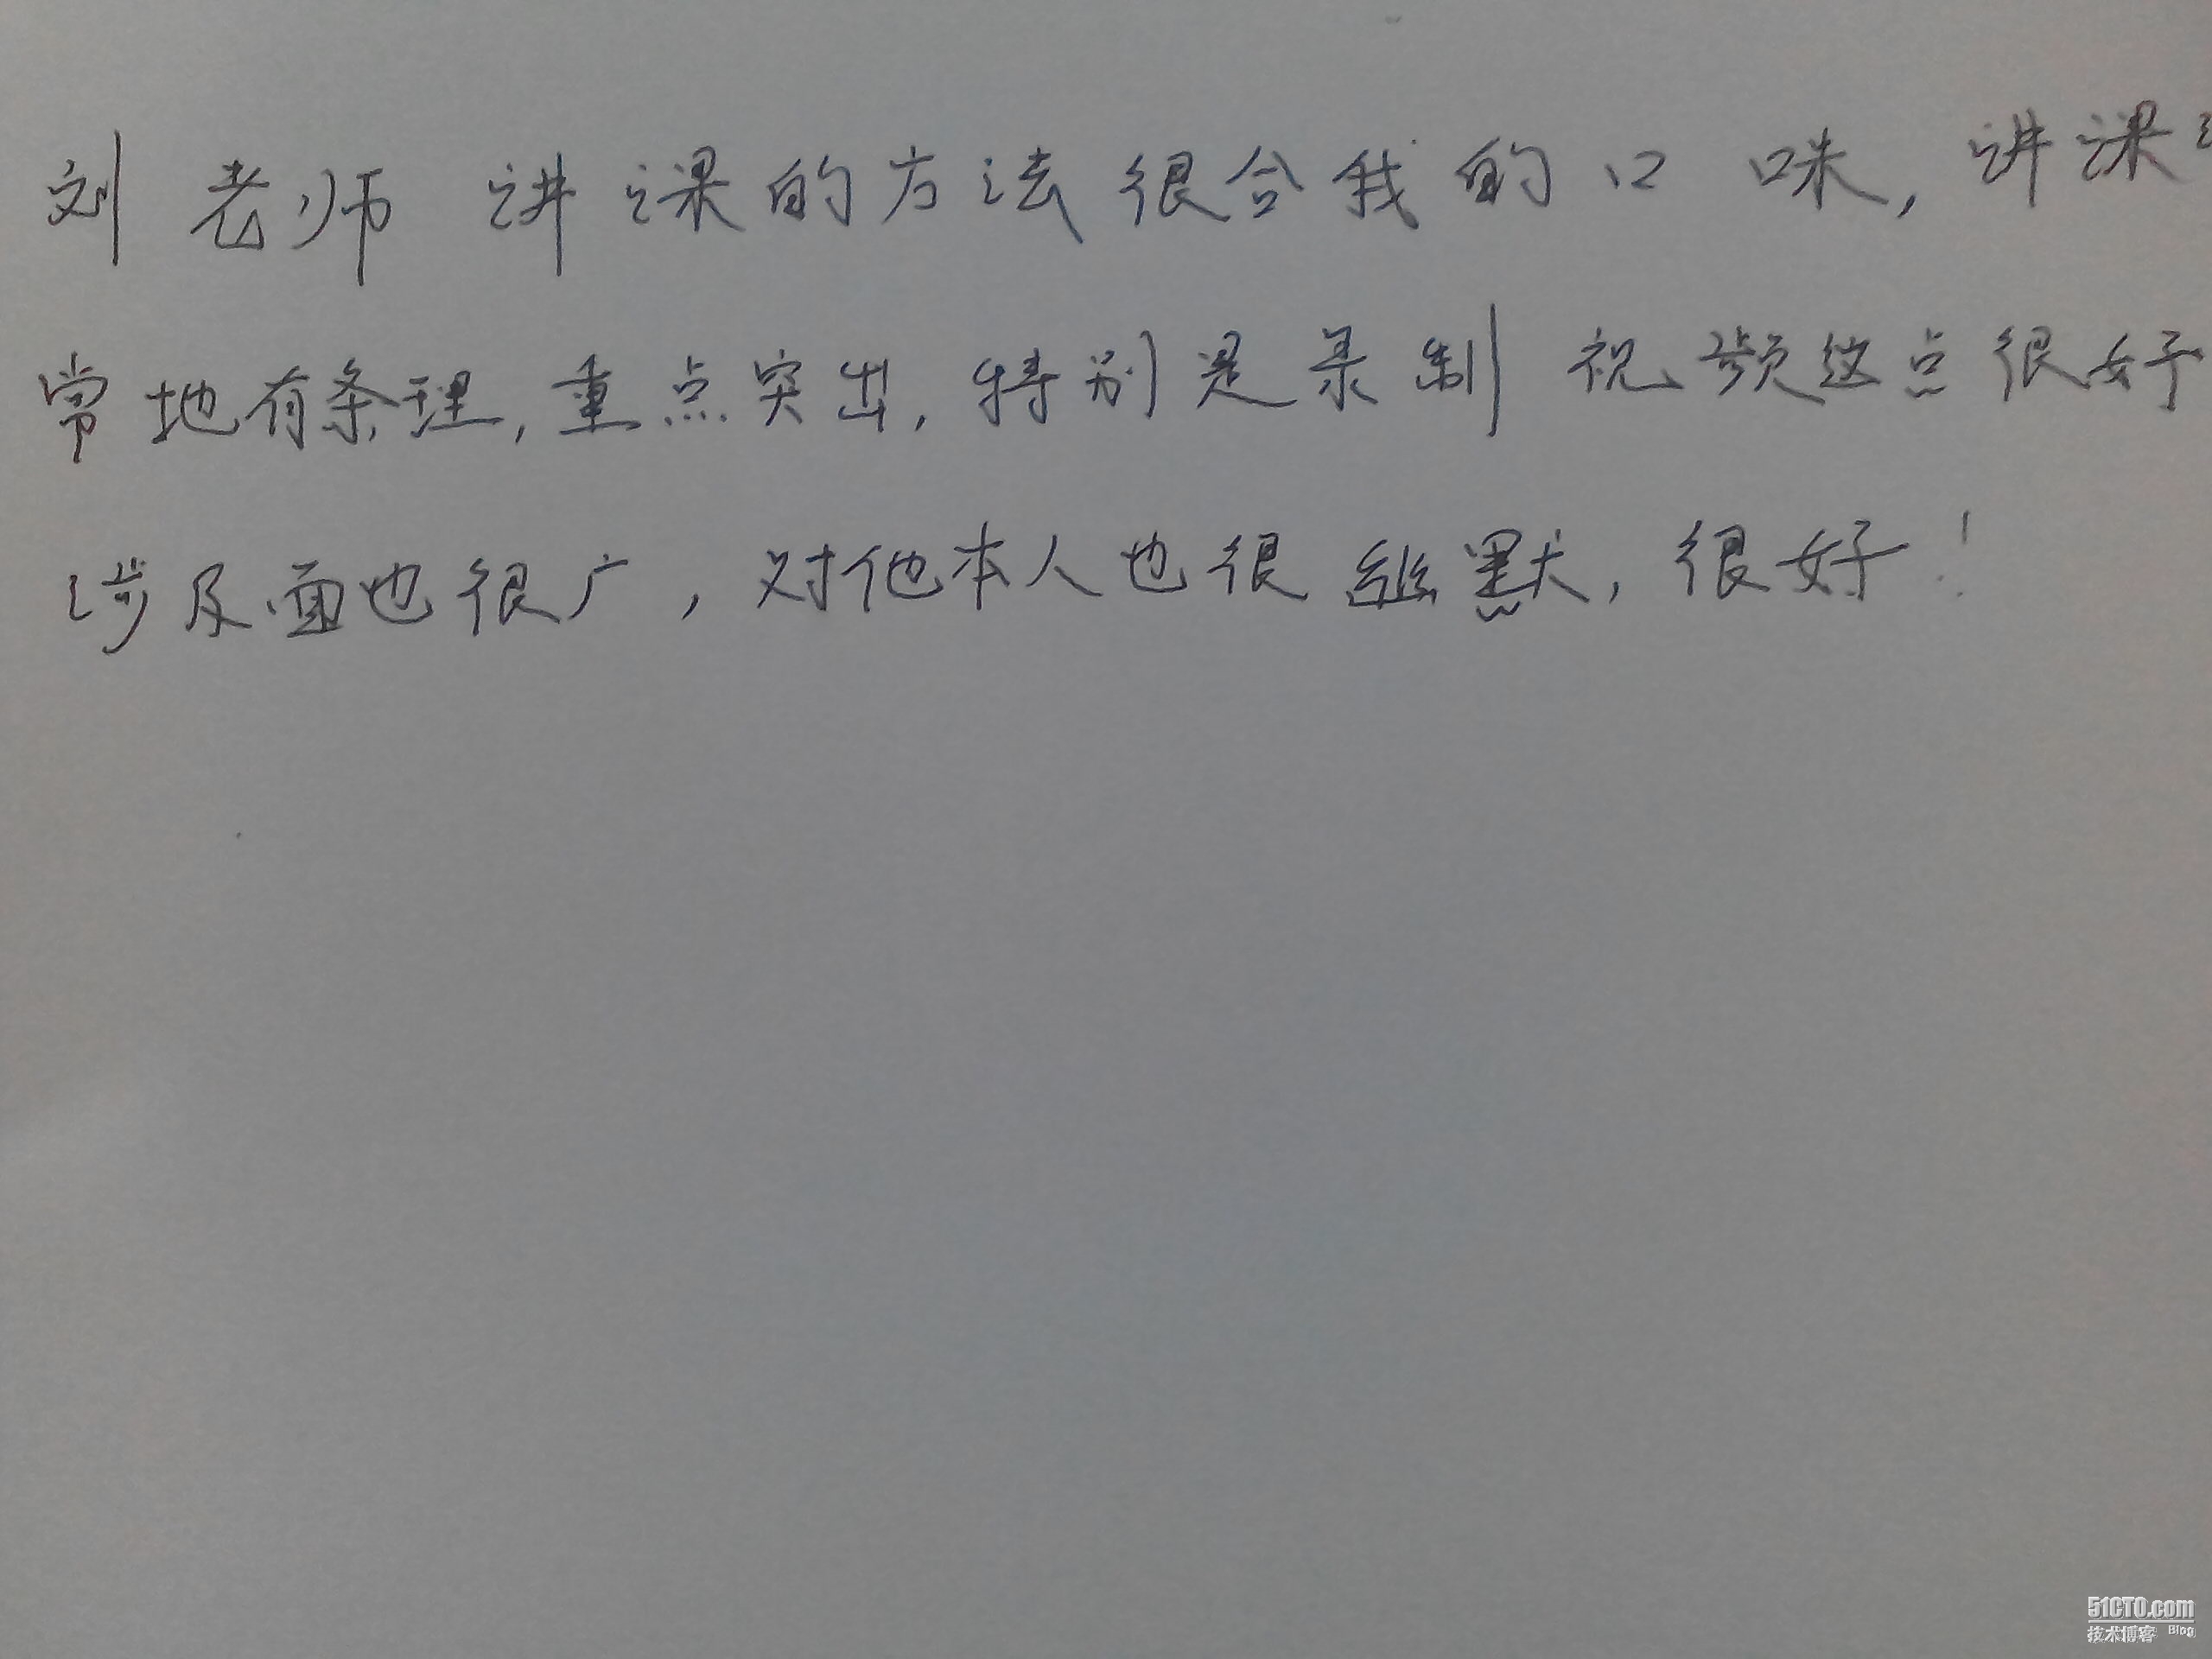 刘老师讲课的方法很合我的口味，讲课
常地有条理，重点突出，特别是录制视频这点很好
涉及面也很广，对他本人也很幽默，很好！
51CTO.com
技术博客 Blog